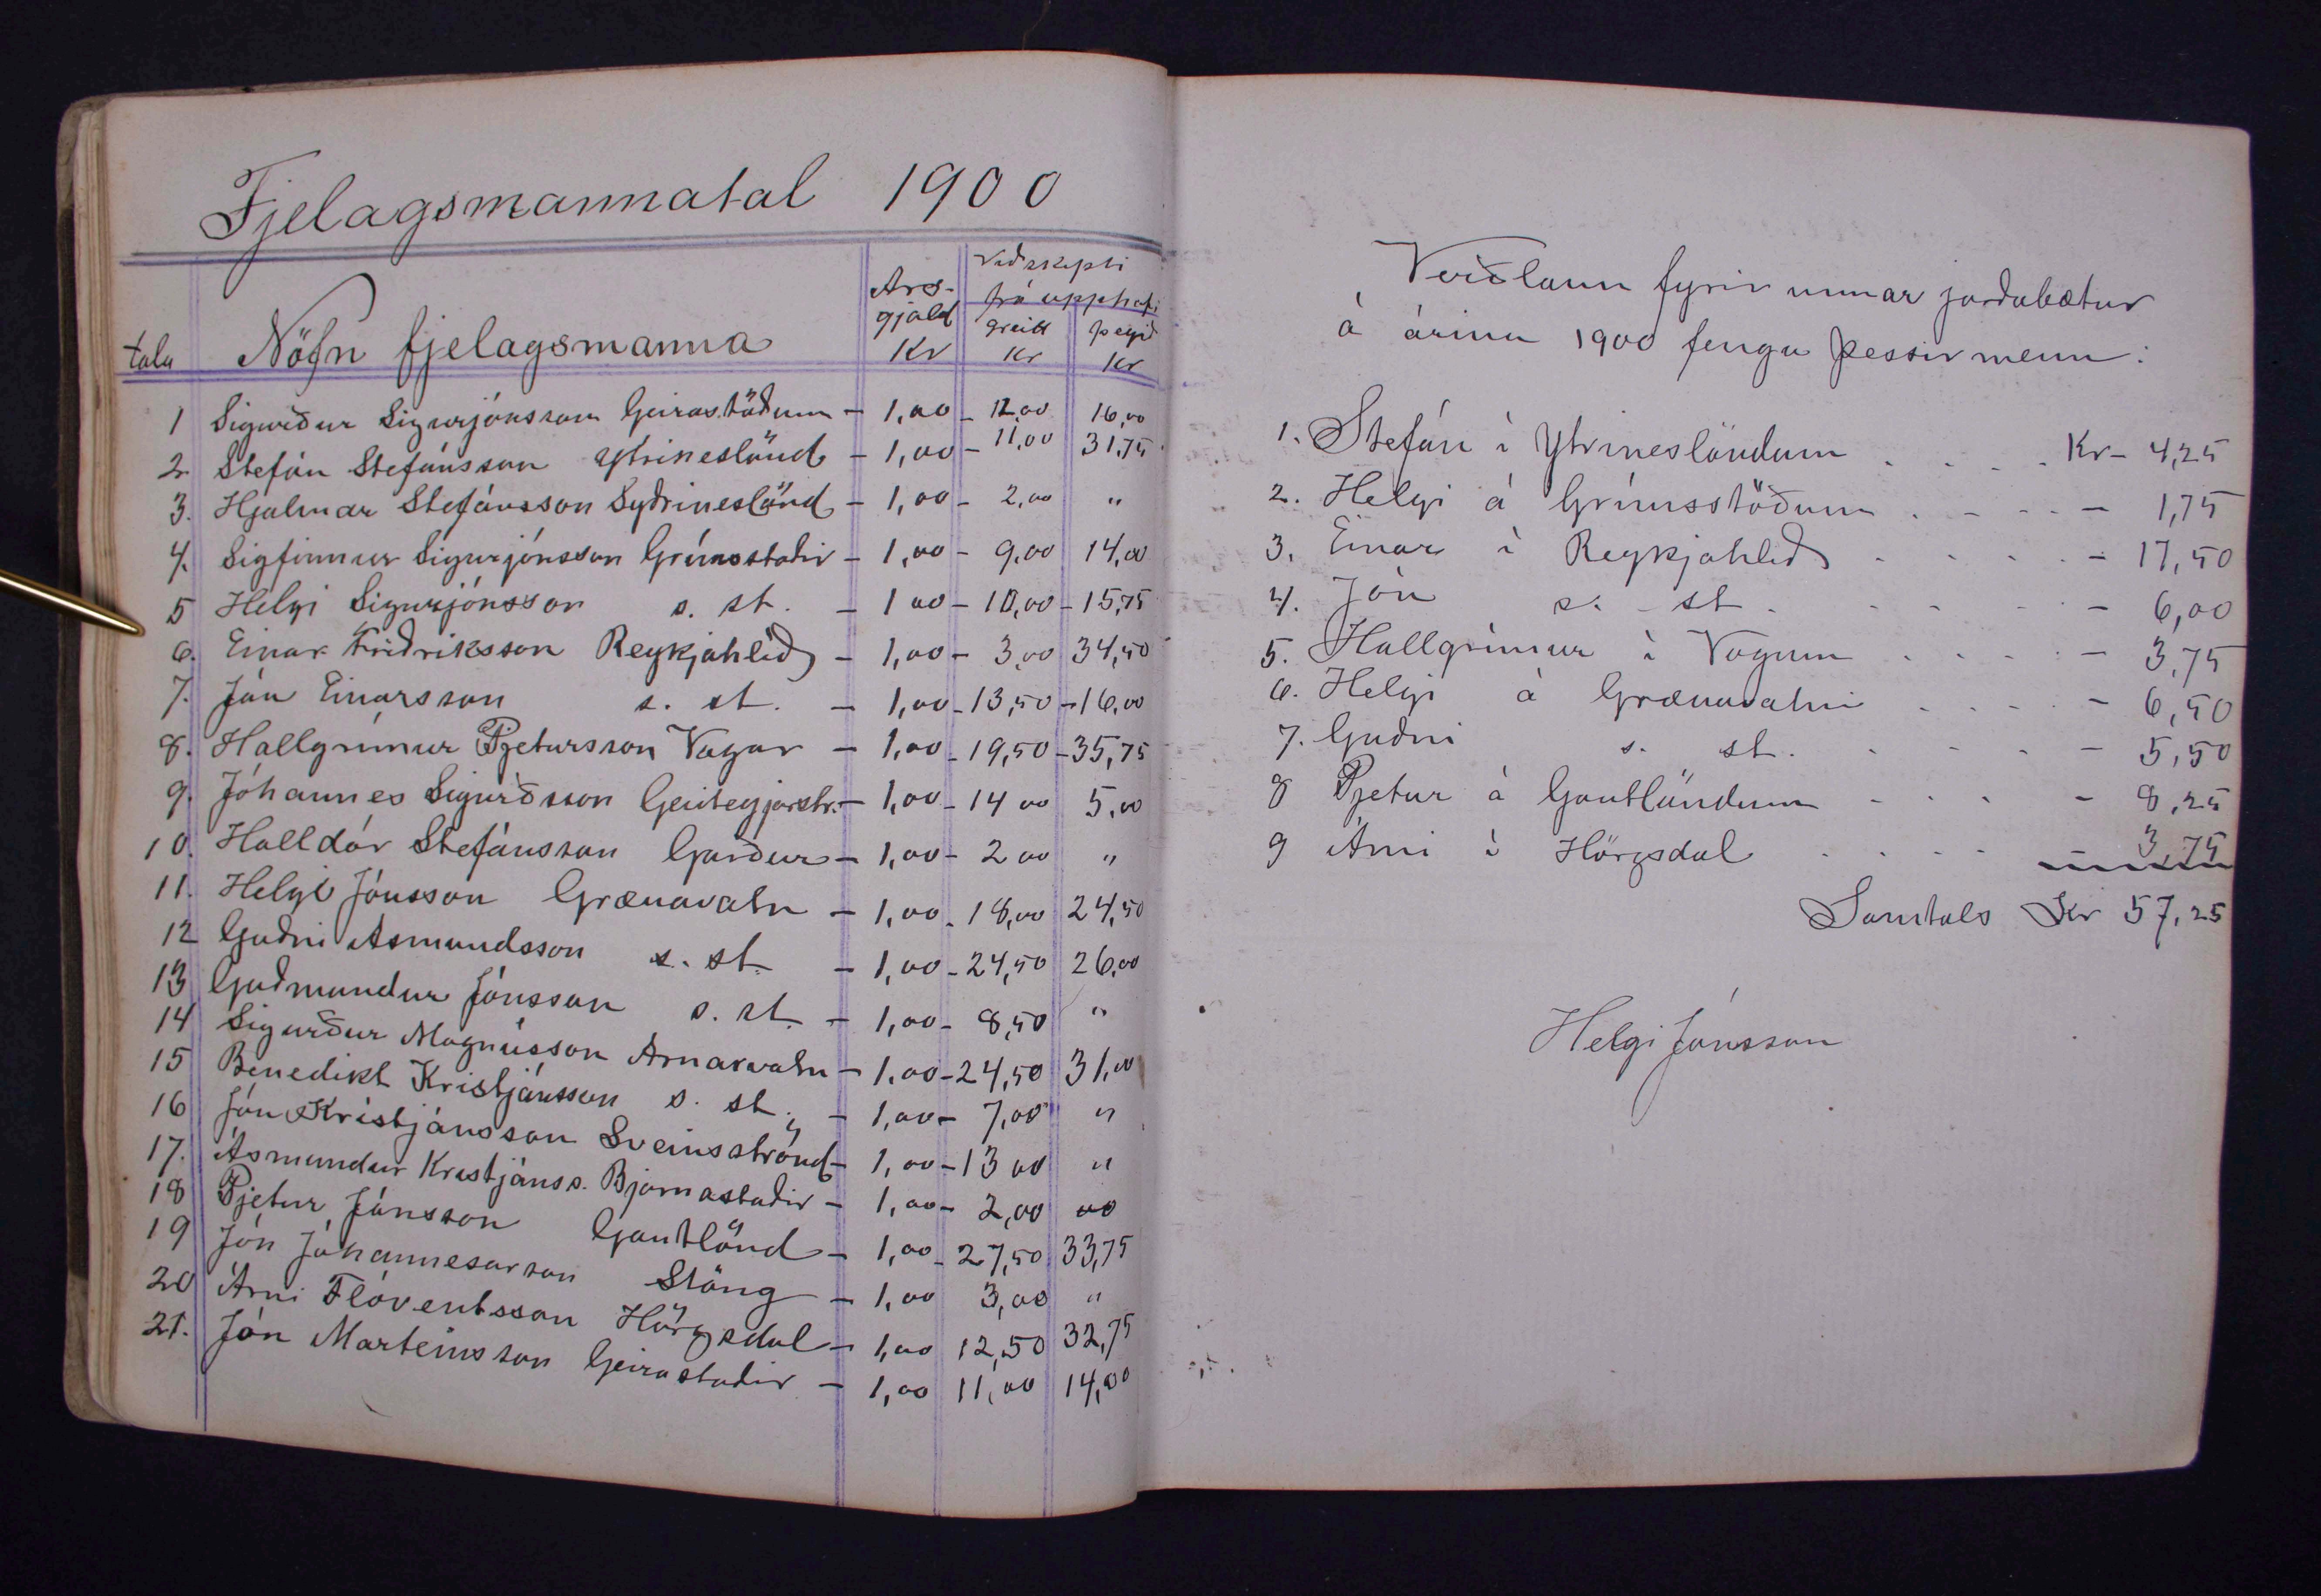 Fjelagsmannatal 1900
tala Nöfn fjelagsmanna Árs-gjald Kr Viðskipti frá upphafi greitt Kr þegið Kr
1 Sigurður Sigurjónsson Geirastöðum - 1,00 - 12,00 16,00
2 Stefán Stefánsson Ytrineslönd - 1,00 - 11,00 31,75
3. Hjalmar Stefánsson Syðrineslönd - 1,00 - 2,00 "
4. Sigfinnur Sigurjónsson Grímsstaðir - 1,00 - 9,00 14,00
5 Helgi Sigurjónsson s. st. - 1 00 - 10,00 - 15,75
6. Einar Friðriksson Reykjahlíð - 1,00 - 3,00 34,50
7. Jón Einarsson s. st. - 1,00 - 13,50 - 16,00
8. Hallgrímur Pjetursson Vogar - 1,00 - 19,50 - 35,75
9. Jóhannes Sigurðsson Geiteyjarstr. - 1,00 - 14 00 5,00
10. Halldór Stefánsson Garður - 1,00 - 2 00 "
11. Helgi Jónsson Grænavatn - 1,00 - 18,00 24,50
12 Guðni Ásmundsson s. st. - 1,00 - 24,50 26,00
13 Guðmundur Jónsson s. st. - 1,00 - 8,50 "
14 Sigurður Magnússon Arnarvatn - 1,00 - 24,50 31,00
15 Benedikt Kristjánsson s. st. - 1,00 - 7,00 "
16 Jón Kristjánsson Sveinsströnd - 1,00 - 13 00 "
17. Ásmundur Kristjánss. Bjarnastaðir - 1,00 - 2,00 00
18 Pjetur Jónsson Gautlönd - 1,00 - 27,50 33,75
19 Jón Jóhannesarson Stöng - 1,00 3,00 "
20 Árni Flóventsson Hörgsdal - 1,00 12,50 32,75
21. Jón Marteinsson Geirastaðir - 1,00 11,00 14,00
Verðlaun fyrir unnar jarðabætur
á árinu 1900 fengu þessir menn:
1. Stefán í Ytrineslöndum . . . . Kr - 4,25
2. Helgi á Grímsstöðum . - . . - 1,75
3. Einar í Reykjahlíð . . . . - 17,50
4. Jón s. st. . . . . - 6,00
5. Hallgrímur í Vogum . . . . - 3,75
6. Helgi á Grænavatni . . . . - 6,50
7. Guðni s. st. . . . . - 5,50
8 Pjetur á Gautlöndum . . . - 8,25
9 Árni í Hörgsdal . . . . 3,75
Samtals Kr 57,25
Helgi Jónsson